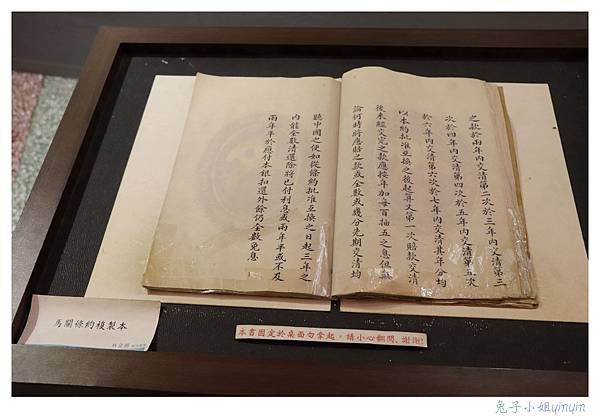 之款於兩年內交清第二次於三年內交清第三
次於四年內交清第四次於五年內交清第五次
於六年內交清第六次於七年內交清其年分均
以本約批准互換之後起算又第一次賠款交清
後未經交完之款應按年加每百抽五之息但無
論何時將應賠之款或全數或幾分先期交清均
聽中國之便如從條約批准互換之日起三年之
內能全數清還除將已付利息或兩年半或不及
兩年半於應付本銀扣還外餘仍全數免息
馬關條約複製本
本書固定於桌面勿拿起，請小心翻閱，謝謝!
兔子小姐yinyin